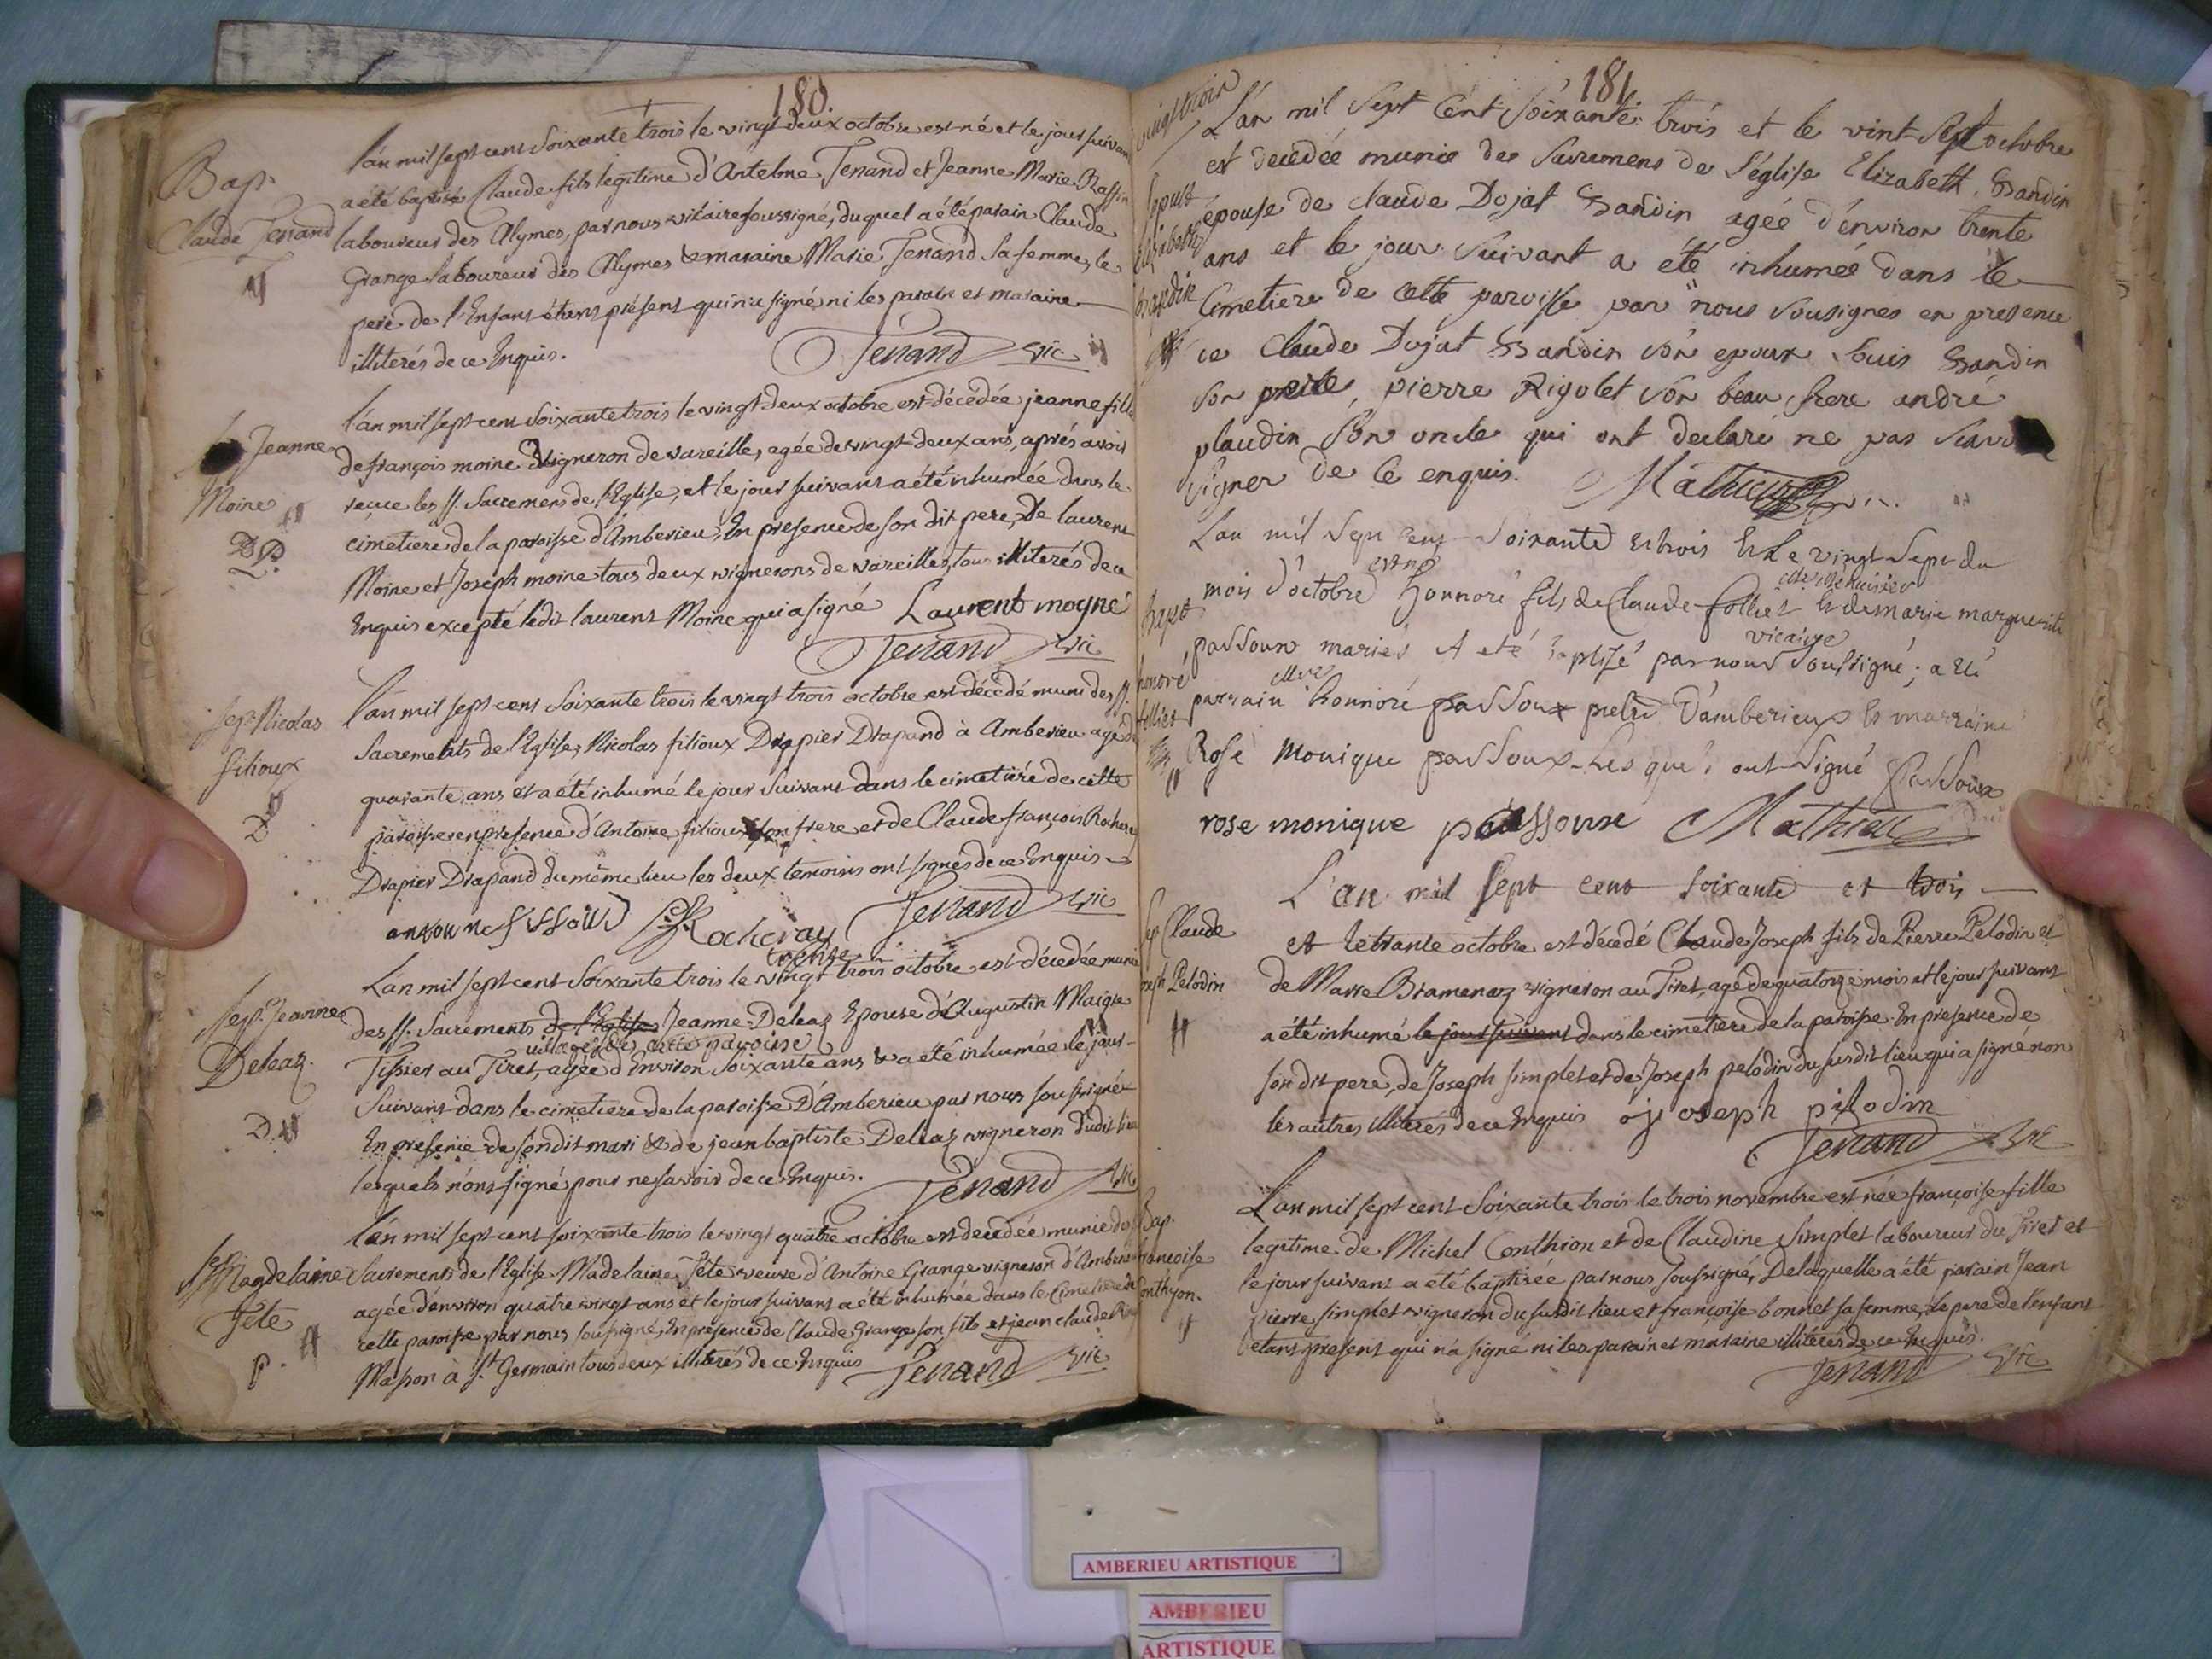 180.
Bap.
Claude Tenand
L'an mil sept cent soixante trois le vingt deux octobre est né et le jour suivant
a été baptisé Claude fils legitime d'Antelme Tenand et Jeanne Marie Raffin
laboureur des Alymes, par nous vicaire soussigné, duquel a été parain Claude
Grange laboureur des Alymes & maraine Marie Tenand sa femme, le
pere de l'Enfant étant présent qui n'a signé ni les parain et maraine
illiterés de ce Enquis.
Tenand vic
Jeanne
Moine
L'an mil sept cent soixante trois le vingt deux octobre est décédée jeanne fille
de françois moine vigneron de vareille, agée de vingt deux ans, aprés avoir
reçue les SS. Sacremens de l'Eglise, et le jour suivant a été inhumée dans le
cimetiere de la paroisse d'Amberieu, En presence de son dit pere, De laurent
Moine et Joseph moine tous deux vignerons de vareilles, tous illiterés de ce
Enquis excepté ledit laurent Moine qui a signé Laurent moyne
Tenand vic
Sep. Nicolas
filioux
D
L'an mil sept cent soixante trois le vingt trois octobre est décédé muni des SS.
Sacrements de l'Eglise, Nicolas filioux Drapier Drapand à Amberieu agé de
quarante ans et a été inhumé le jour suivant dans le cimetiére de cette
paroisse en presence d'Antoine filioux son frere et de Claude françois Rocheray
Drapier Drapand du même lieu les deux temoins ont signés de ce Enquis
Rocheray Tenand vic
Sep. Jeanne
Deleaz.
D
trente
L'an mil sept cent soixante trois le vingt trois octobre est décedée munie
des SS. Sacrements de l'Eglise Jeanne Deleaz Epouse d'Augustin Maigre
village de cette paroisse
Tissier au Tiret, agée d'Environ soixante ans & a été inhumée le jour
suivant dans le cimetiere de la paroisse D'Amberieu par nous soussigné
En presence de son dit mari & de jean baptiste Deleaz vigneron dudit lieu
lesquels n'ont signé pour ne savoir de ce Enquis.
Tenand vic
Sep. Magdelaine
Tête
P.
L'an mil sept cent soixante trois le vingt quatre octobre est decedée munie des
Sacrements de l'Eglise Madelaine Tête veuve d'Antoine Grange vigneron d'Amberieu
agée d'environ quatre vingt ans et le jour suivant a été inhumée dans le Cimetiere de
cette paroisse par nous soussigné, En présence de Claude Grange son fils et jean claude
Masson à St. Germain tous deux illiterés de ce Enquis Tenand vic
181
vingt trois
Sepult
Elizabeth
Bandin
L'an mil sept cent soixante trois et le vint-sept octobre
est decedée munie des sacremens de l'église Elizabeth Bandin
épouse de claude Dojat Bandin agée d'environ trente
ans et le jour suivant a été inhumée dans le
Cimetiere de cette paroisse par nous sousignes en presence
de Claude Dojat Bandin son epoux Louis Bandin
son pere, pierre Rigolet son beau frere andré
plaudin son oncle qui ont declaré ne pas scavoir
signer de ce enquis. Mathieu
Bapt
honoré
folliet
Lan mil sept cent soixante et trois et Le vingt sept du
est né
mois d'octobre honnoré fils de Claude folliet et de marie marguerite
vicaire
passoux mariés A eté Baptisé par nous soussigné; a eté
parrain honnoré passoux pretre d'amberieux et marraine
Rose Monique passoux lesquels ont signé Passoux
rose monique passoux Mathieu
Sep Claude
Joseph Pelodin
L'an mil sept cent soixante et trois
et le trante octobre est décedé Claude Joseph fils de Pierre Pelodin et
de Marie Bramenaz vigneron au Tiret, agé de quatorze mois et le jour suivant
a été inhumé le jour suivant dans le cimetiere de la paroisse En presence de
son dit pere, de Joseph simplet et de Joseph pelodin du susdit lieu qui a signé non
les autres illiterés de ce Enquis joseph pilodin
Tenand vic
Bap.
francoise
Conthyon.
L'an mil sept cent soixante trois le trois novembre est née françoise fille
legitime de Michel Conthion et de Claudine simplet laboureur du Tiret et
le jour suivant a été baptisée par nous soussigné, De laquelle a été parain Jean
pierre simplet vigneron du susdit lieu et françoise bonnet sa femme, le pere de l'enfant
etant present qui n'a signé ni les parain et maraine illiterés de ce Enquis.
Tenand vic
AMBERIEU ARTISTIQUE
AMBERIEU
ARTISTIQUE